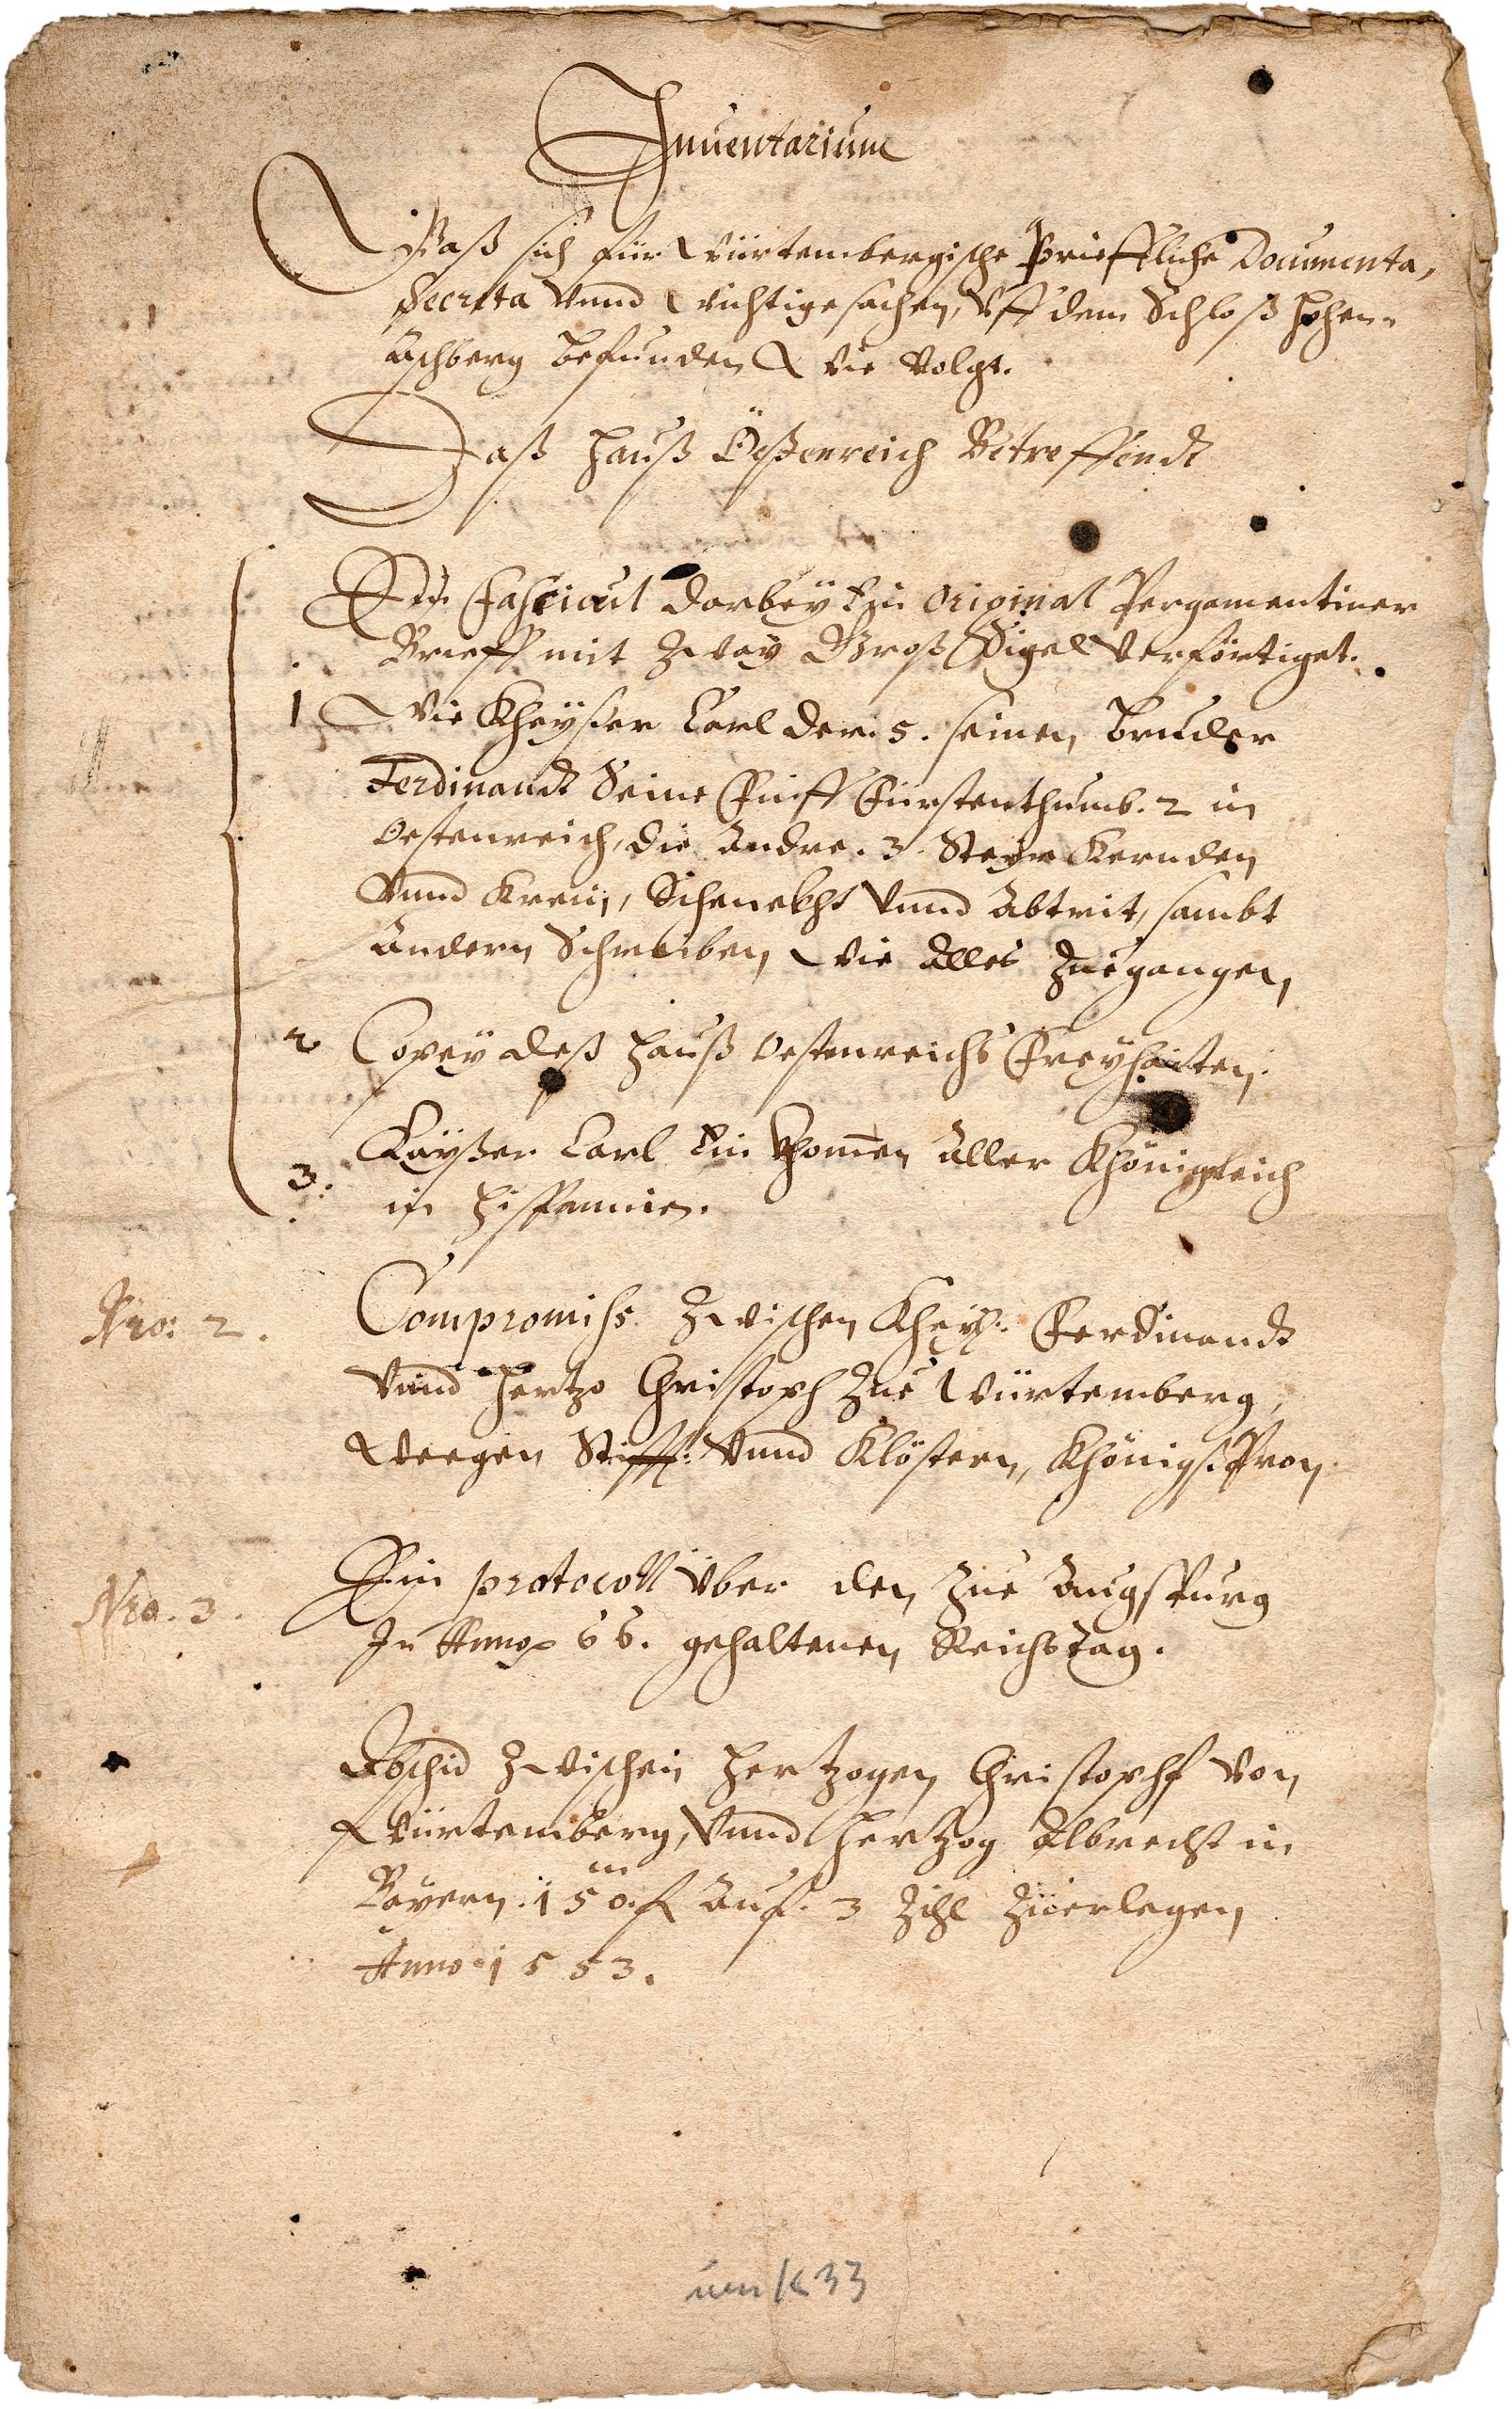 Inuentarium
Waß sich für Würtembergische Brieffliche Documenta,
Secreta vnnd Wichtige sachen, vff dem Schloß Hohen-
Aschberg befunden Wie volgt.
Daß Hauß Össterreich Betreffendt
Ein Fascicul darbey Ein Original Pergamentiner
Brieff mit Zway Groß Sigel verförtiget.
1 Wie Kheyser Carl der. 5. seinen bruder
Ferdinandt Seine Fünff Fürstenthumb. 2 in
Oesterreich, die Andre. 3. Steyr Kernden
vnnd Krein, Schenckht vnnd Abtrit, sambt
Andern Schreiben, Wie Alles Zuegangen,
2 Copey deß Hauß Oesterreichs Freyhaiten.
3. Kayßer Carl Ein khomen Aller Khönigreich
in Hispannien.
Nro: 2. Compromiss. Zwischen Khey: Ferdinandt
vnnd Hertzo Christoph Zue Würtemberg,
Wegen Stifft: vnnd Klöstern, Khönigs Pron
Nro. 3. Ein protocoll Vber den Zue Augspurg
In Anno 66. gehaltenen Reichstag.
Abschid Zwischen Hertzogen Christophf von
Würtemberg, vnnd Hertzog Albrecht in
Bayern. 150.m f Auf. 3 Zihl Zuerlegen
Anno 1553.
K 33